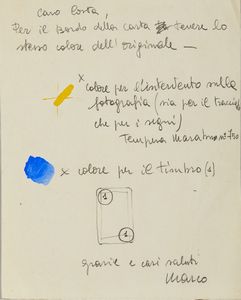 caro Costa,
Per il Bordo della carta tenere lo
stesso colore dell'originale —
x colore per l'intervento sulla
fotografia (sia per il
che per i segni)
Tempera
x colore per il timbro (1)
1
1
grazie e cari saluti
Marco